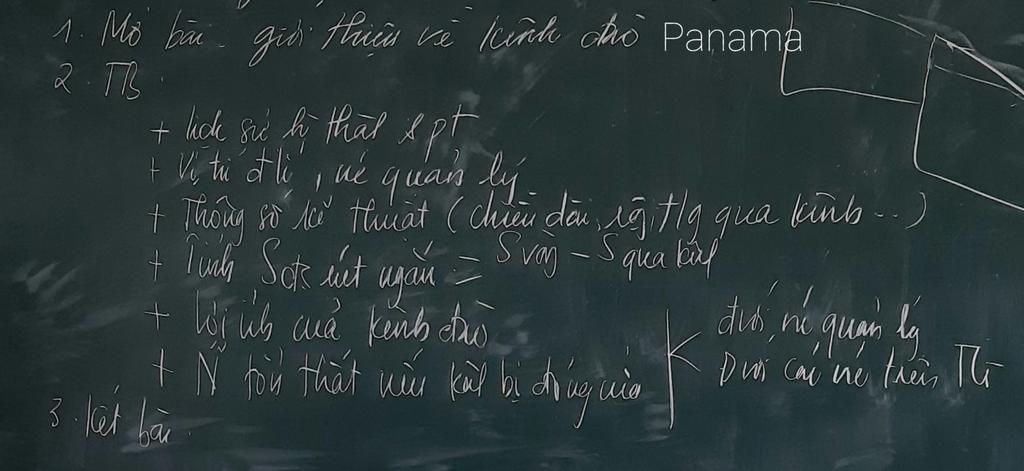 1. Mở bài - giới thiệu về kênh đào Panama
2. TB.
+ lịch sử hì thàh & pt
+ Vị trí đ lí, nc quản lý
+ Thông số kĩ thuật (chiều dài, rộg, t/g qua kênh...)
+ Tính S đc rút ngắn = S vòg - S qua kêh
+ Lợi ích của kênh đào
+ N~ tổn thất nếu kêh bị đóng cửa
đvới nc quản lý
Đvới các nc trên TG
3. Kết bài.